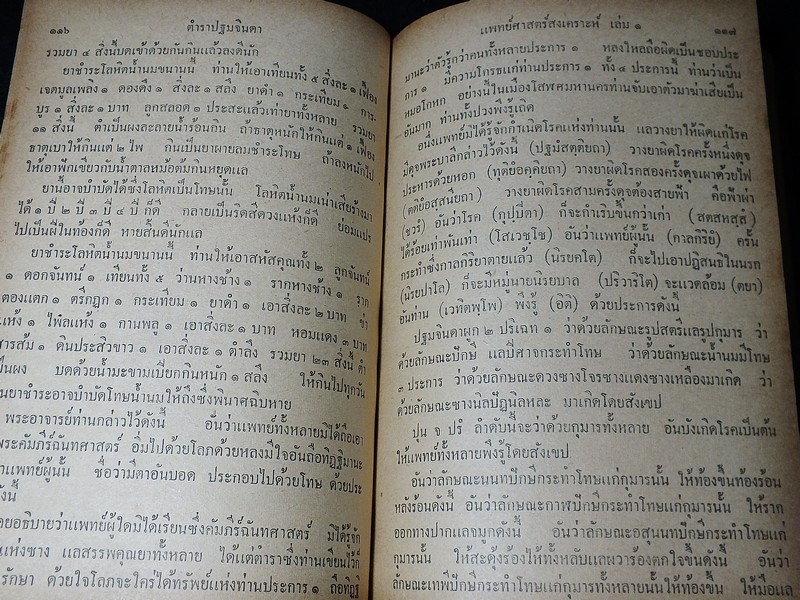 ๑๑๖ ตำราปฐมจินดา
รวมยา ๔ สิ่งนี้บดเข้าด้วยกันกินแล้วลงดีนัก
ยาชำระโลหิตน้ำนมขนานนี้ ท่านให้เอาเทียนทั้ง ๕ สิ่งละ ๑ เฟื้อง
เจตมูลเพลิง ๑ ดองดึง ๑ สิ่งละ ๑ สลึง ยาดำ ๑ กระเทียม ๑ การะ-
บูร ๑ สิ่งละ ๑ บาท ลูกสลอด ๑ ประสะแล้วเท่ายาทั้งหลาย รวมยา
๑๑ สิ่งนี้ ตำเป็นผงละลายน้ำร้อนกิน ถ้าธาตุหนักให้กินแต่ ๑ เฟื้อง
ธาตุเบาให้กินแต่ ๒ ไพ กินเป็นยาผายลมชำระโทษ ถ้าลงหนักไป
ให้เอาพิกเขียวกับน้ำตาลหม้อต้มกินหยุดแล
ยานี้อาจบำบัดได้ซึ่งโลหิตเป็นโทษนั้น โลหิตน้ำนมเน่าเสียร้างมา
ได้ ๑ ปี ๒ ปี ๓ ปี ๔ ปี ก็ดี กลายเป็นริดสีดวงแห้งก็ดี ย่อมแปร
ไปเป็นฝีในท้องก็ดี หายสิ้นดีนักแล
ยาชำระโลหิตน้ำนมขนานนี้ ท่านให้เอาสหัสคุณทั้ง ๒ ลูกจันทน์
๑ ดอกจันทน์ ๑ เทียนทั้ง ๕ ว่านหางช้าง ๑ รากหางช้าง ๑ ราก
ตองแตก ๑ ตรีกฏูก ๑ กระเทียม ๑ ยาดำ ๑ เอาสิ่งละ ๒ บาท ข่า
แห้ง ๑ ไพ๋ลแห้ง ๑ กานพลู ๑ เอาสิ่งละ ๑ บาท หอมแดง ๓ บาท
สารส้ม ๑ ดินประสิวขาว ๑ เอาสิ่งละ ๑ ตำลึง รวมยา ๒๓ สิ่งนี้ ตำ
เป็นผง บดด้วยน้ำมะขามเปียกกินหนัก ๑ สลึง ให้กินไปทุกวัน
นยาชำระอาจบำบัดโทษน้ำนมให้ถึงซึ่งพินาศฉิบหาย
พระอาจารย์ท่านกล่าวไว้ดังนี้ อันว่าแพทย์ทั้งหลายมิได้ถือเอา
พระคัมภีร์ฉันทศาสตร์ อิ่มไปด้วยโลภด้วยหลงมีใจอันถือทิฏฐิมานะ
าแพทย์ผู้นั้น ชื่อว่ามีตาอันบอด ประกอบไปด้วยโทษ ด้วยประ
ังนี้
อยอธิบายว่าแพทย์ผู้ใดมิได้เรียนซึ่งคัมภีร์ฉันทศาสตร์ มิได้รู้จัก
แห่งซาง แลสรรพคุณยาทั้งหลาย ได้แต่ตำราซึ่งท่านเขียนไว้ก็
รักษา ด้วยใจโลภจะใคร่ได้ทรัพย์แห่งท่านประการ ๑ ถือทิฏฐิ
แพทย์ศาสตร์สงเคราะห์ เล่ม ๑ ๑๑๗
มานะว่าตัวรู้กว่าคนทั้งหลายประการ ๑ หลงใหลถือผิดเป็นชอบประ
การ ๑ มีความโกรธแก่ท่านประการ ๑ ทั้ง ๔ ประการนี้ ท่านว่าเป็น
หมอโกหก อย่างนี้ในเมืองโสฬศมหานครท่านจับเอาตัวมาฆ่าเสียเป็น
อันมาก ท่านทั้งปวงพึงรู้เถิด
อนึ่งแพทย์มิได้รู้จักกำเนิดโรคแห่งท่านนั้น แลวางยาให้ผิดแก่โรค
มีดุจพระบาลีกล่าวไว้ดังนี้ (ปฐมํสตฺติยถา) วางยาผิดโรคครั้งหนึ่งดุจ
ประหารด้วยหอก (ทุติยํอคฺคิยถา) วางยาผิดโรคสองครั้งดุจเผาด้วยไฟ
(ตติยํอสฺสนียถา) วางยาผิดโรคสามครั้งดุจต้องสายฟ้า คือฟ้าผ่า
(ชวรํ) อันว่าโรค (กุปฺปีตา) ก็จะกำเริบขึ้นกว่าเก่า (สตสหสฺสํ)
ได้ร้อยเท่าพันเท่า (โสเวชฺโช) อันว่าแพทย์ผู้นั้น (กาลกิริยํ) ครั้น
กระทำซึ่งกาลกิริยาตายแล้ว (นิรยคโต) ก็จะไปเอาปฏิสนธิในนรก
(นิรยปาโล) ก็จะมีหมู่นายนิรยบาล (ปริวาริโต) จะแวดล้อม (ตยา)
อันท่าน (เวทิตพฺโพ) พึงรู้ (อิติ) ด้วยประการดังนี้
ปฐมจินดาผูก ๒ ปริเฉท ๑ ว่าด้วยลักษณะรูปสตรีแลรูปกุมาร ว่า
ด้วยลักษณะปักษี แลปีศาจกระทำโทษ ว่าด้วยลักษณะน้ำนมมีโทษ
๓ ประการ ว่าด้วยลักษณะดวงซางโจรซางแดงซางเหลืองมาเกิด ว่า
ด้วยลักษณะซางนิลปัฏนิลหละ มาเกิดโดยสังเขป
ปุน จ ปรํ ลำดับนี้จะว่าด้วยกุมารทั้งหลาย อันบังเกิดโรคเป็นต้น
ให้แพทย์ทั้งหลายพึงรู้โดยสังเขป
อันว่าลักษณะนนทปักษีกระทำโทษแก่กุมารนั้น ให้ท้องขึ้นท้องร้อน
หลังร้อนดังนี้ อันว่าลักษณะกาฬปักษีกระทำโทษแก่กุมารนั้น ให้ราก
ออกทางปากแลจมูกดังนี้ อันว่าลักษณะอสุนนทปักษีกระทำโทษแก่
กุมารนั้น ให้สะดุ้งร้องไห้ทั้งหลับแลผวาร้องตกใจขึ้นดังนี้ อันว่า
ลักษณะเทพีปักษีกระทำโทษแก่กุมารทั้งหลายนั้นให้ท้องขึ้น ให้มือแล